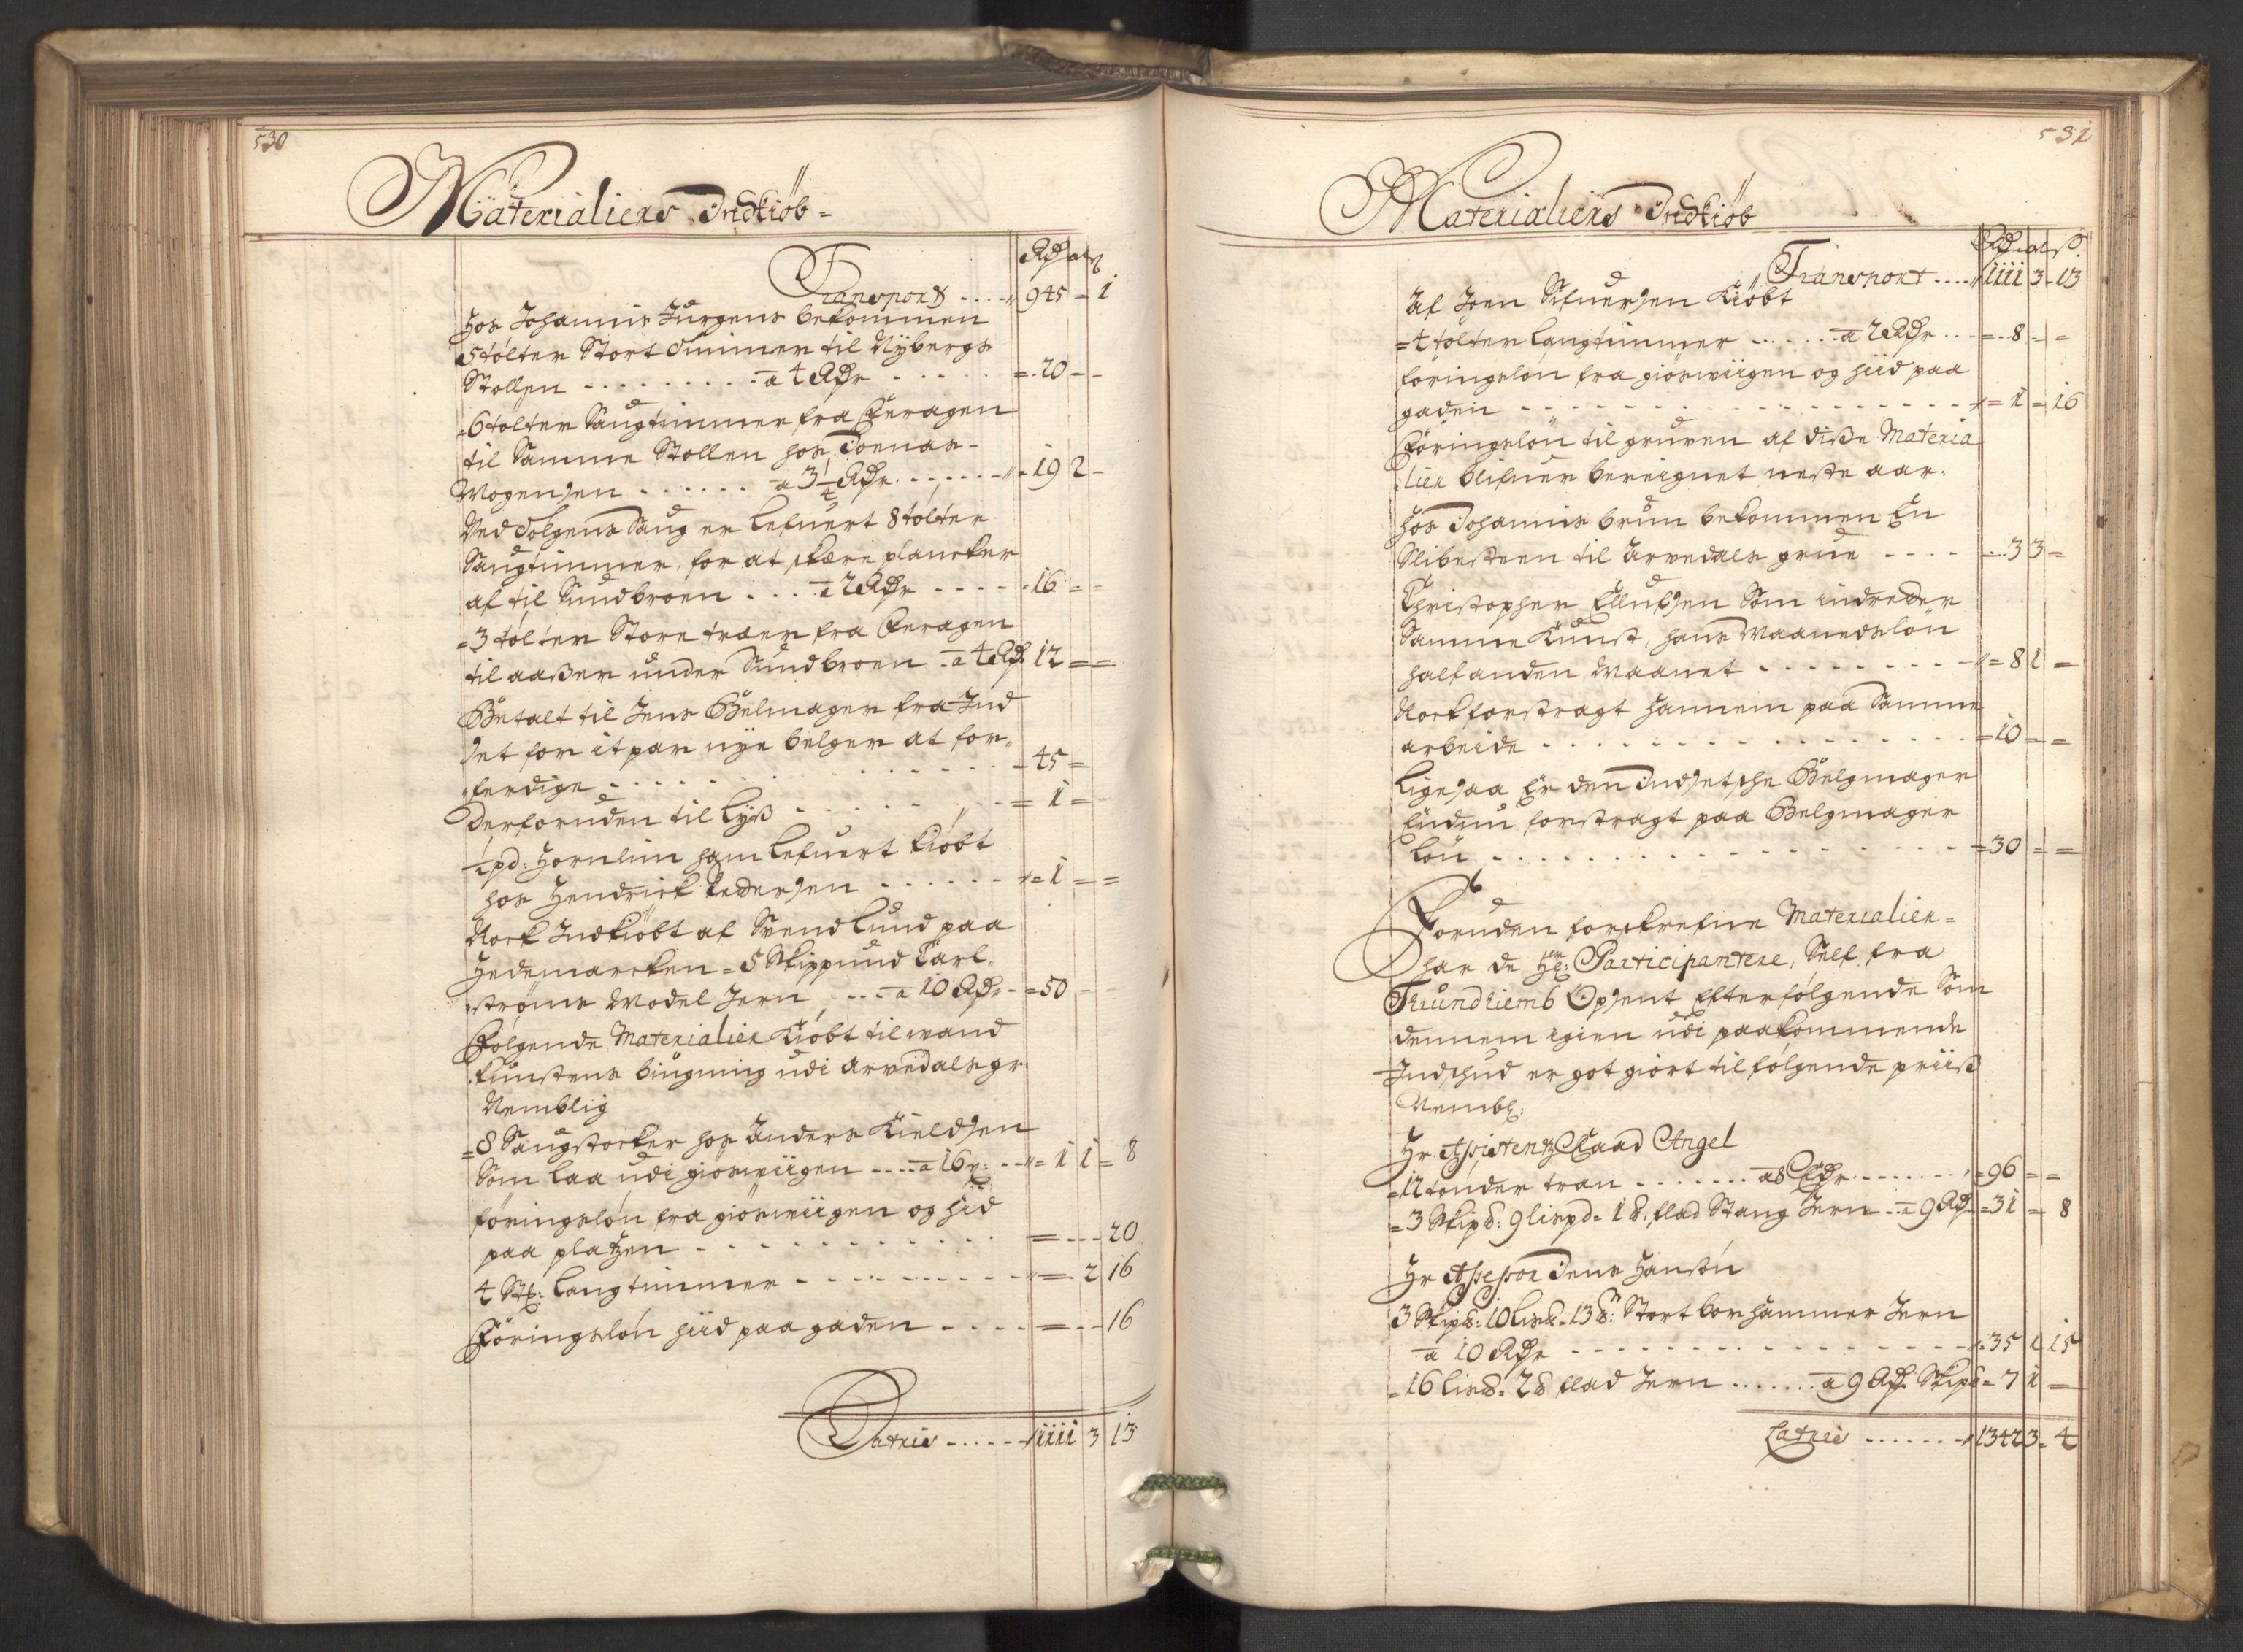 530
Materialiers Indkiöb =
Rdr ort ß
Transport .... 945 - 1
Hos Johannis Jürgens bekommen
5 tölter Stort Timmer til Nÿbergs
Stollen ......... a 4 Rdr ..... = 20 - -
= 6 tölter Saugtimmer fra Feragen
til Samme Stollen hos Joenas
Mogensen ...... a 3 1/4 Rdr ...... = 19 2 -
Ved Tolgens Saug er lefuert 8 tölter
Saugtimmer, for at skære plancker
af til Sundbroen ... a 2 Rdr .... = 16 = -
= 3 tölter Store træer fra Feragen
til aaßer under Sundbroen - a 4 Rdr 12 = =
Betalt til Jens Belmager fra Ind
Set for it par nÿe belger at for„
ferdige ..... - 45 =
Derforuden til Lÿß ...... = 1 = -
1/2 pd: Hornlim ham lefuert kiöbt
hos Hendrick Pedersen ...... = 1 = =
Nock Indkiöbt af Svend Lund paa
Hedemarcken = 5 Skippund Carl„
ströms Model Jern .... a 10 Rdr - = 50 - -
Fölgende Materialier Kiöbt til wand
kunstens bügning udi Arvedals gr
Nemblig
= 8 Saugstocker hos Anders Kieldsen
Som laa udi giöswiigen .... a 16 ß: .. = 1 1 = 8
föringslön fra giöswiigen og hid
paa platzen ........... = - - - 20
4 Stk: Langtimmer .......... = 2 16
Föringslön hiid paa gaden .... = - - 16
Latris ..... 1111 3 13
531
Materialiers Indkiöb
Rdr ort ß
Transport .... 1111 3 - 13
Af Joen Sifuersen Kiöbt
= 4 tölter Langtimmer ...... a 2 Rdr ... = - 8 - =
föringslön fra giöswiigen og hiid paa
gaden .................. = 1 = 16
Föringslön til gruven af diße Materia
lier blifuer bereignet neste aar.
Hos Johannis brun bekommen En
Slibesteen til Arvedals grue .... - - 3 3 =
Christopher Ellufsen Som indreder
Samme Kunst, hans Maanedslön
half anden Maanet ........ = 8 1 =
Nock forstragt hannem paa Samme
arbeide ................ = 10 = =
Ligesaa Er den Indsetshe Belgmager
Endnu forstragt paa Belgmager
Lön ................ = 30 = =
Foruden forskrefne Materialier =
har de Hr: Participantere, Self fra
Trundhiemb Opsent Efterfölgende Som
dennem igien udi paakommende
Indshud er got giort til fölgende priiß
Nembl:
Hr. Assistentz Raad Angel
= 12 tönder tran ....... a 8 Rdr ....... = 96 = =
= 3 Skip ℔: 9 lispd = 1 ℔: flad Stang Jern - a 9 Rdr - = 31 = 8
Hr Assessor Jens Hansön
3 Skip ℔: 10 Lis ℔ - 13 ℔: Stort bor hammer Jern
a 10 Rdr .............. = 35 1 15
= 16 Lis ℔ = 2 ℔ flad Jern ....... a 9 Rdr Skip ℔ = 7 1 =
Latris ....... 1342 3 = 4